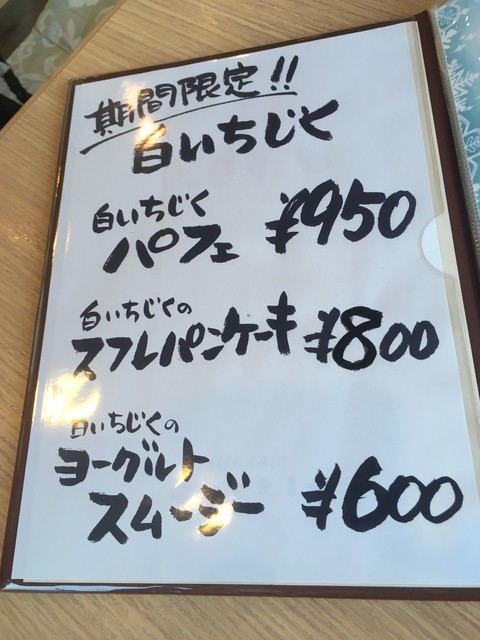 期間限定!!
白いちじく
白いちじく
パフェ ¥950
白いちじくの
スフレパンケーキ ¥800
白いちじくの
ヨーグルト
スムージー ¥600